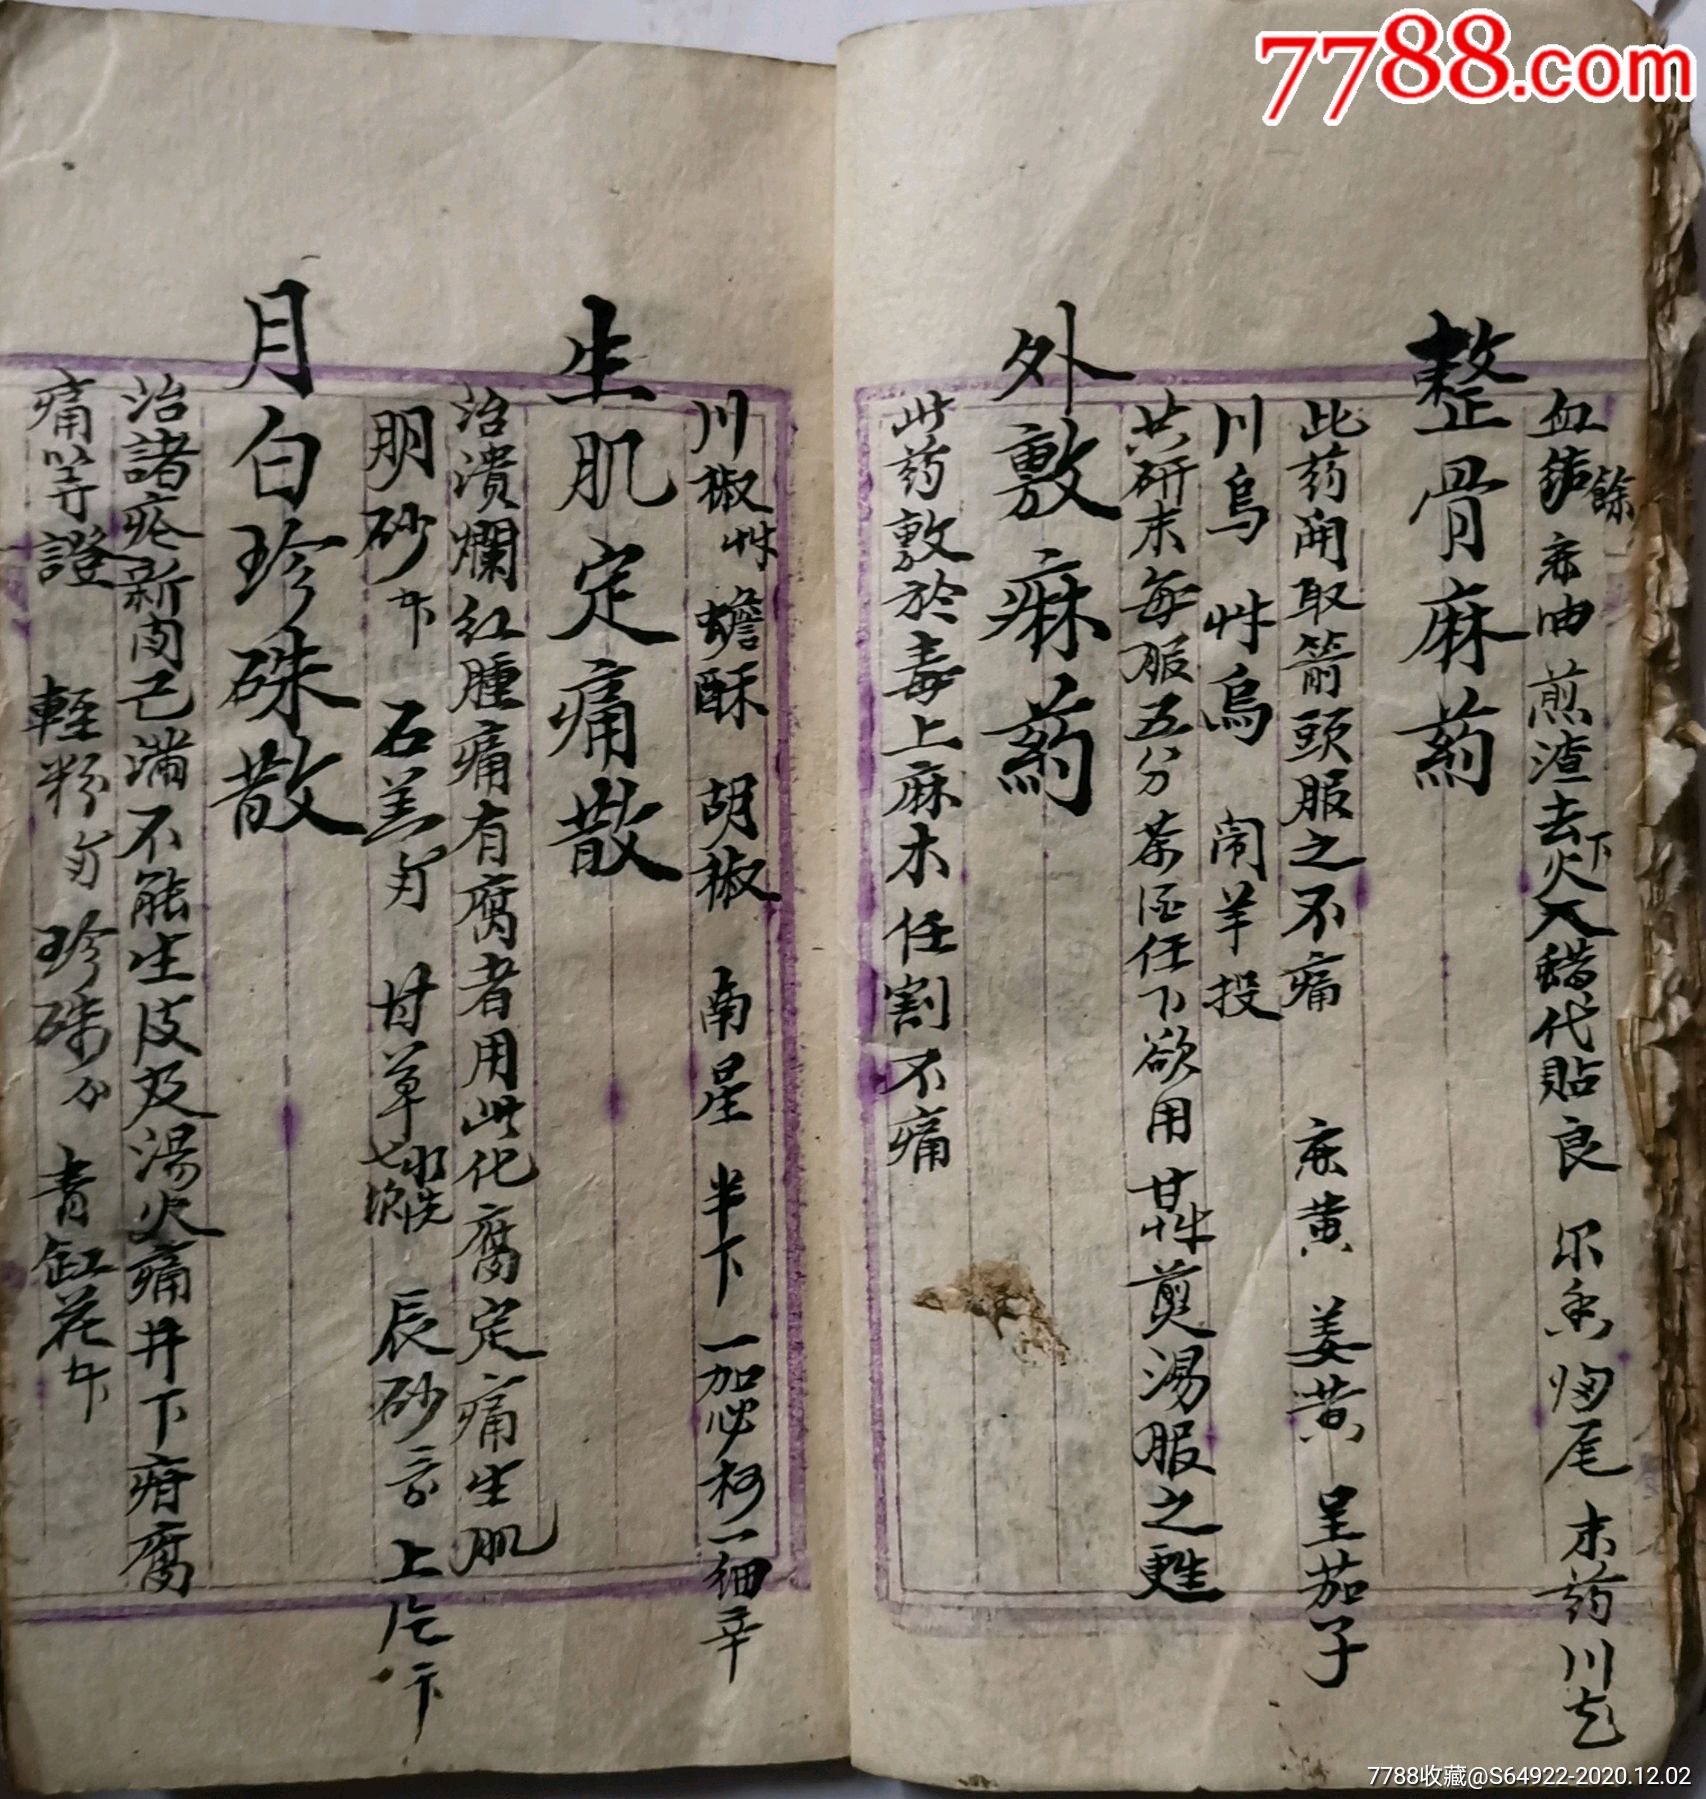 7788.com
血餘 麻油煎渣去火下入醋代貼良 尔香 归尾 末药 川乞
整骨麻药
此药開取箭頭服之不痛 麻黄 姜黄 呈茄子
川烏 艸烏 闹羊投
共研末每服五分茶酒任下欲用甘艸煎湯服之甦
外敷麻药
此药敷於毒上麻木任割不痛
川椒 艸 蟾酥 胡椒 南星 半下 一加 一細辛
生肌定痛散
治潰爛紅腫痛有腐者用此化腐定痛生肌
朋砂 石羔 甘草水洗 辰砂 上
月白珍硃散
治諸疮新肉已满不能生皮及湯火痛井下疳腐
痛等證 輕粉 珍硃 青缸花
7788收藏@S64922-2020.12.02